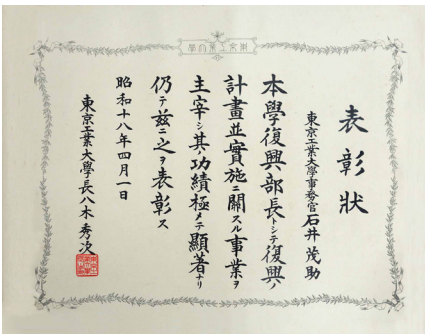 東京工業大學
表彰狀
東京工業大學事務官 石井茂助
本學復興部長トシテ復興ノ
計畫並實施ニ關スル事業ヲ
主宰シ其ノ功績極メテ顯著ナリ
仍テ玆ニ之ヲ表彰ス
昭和十八年四月一日
東京工業大學長八木秀次